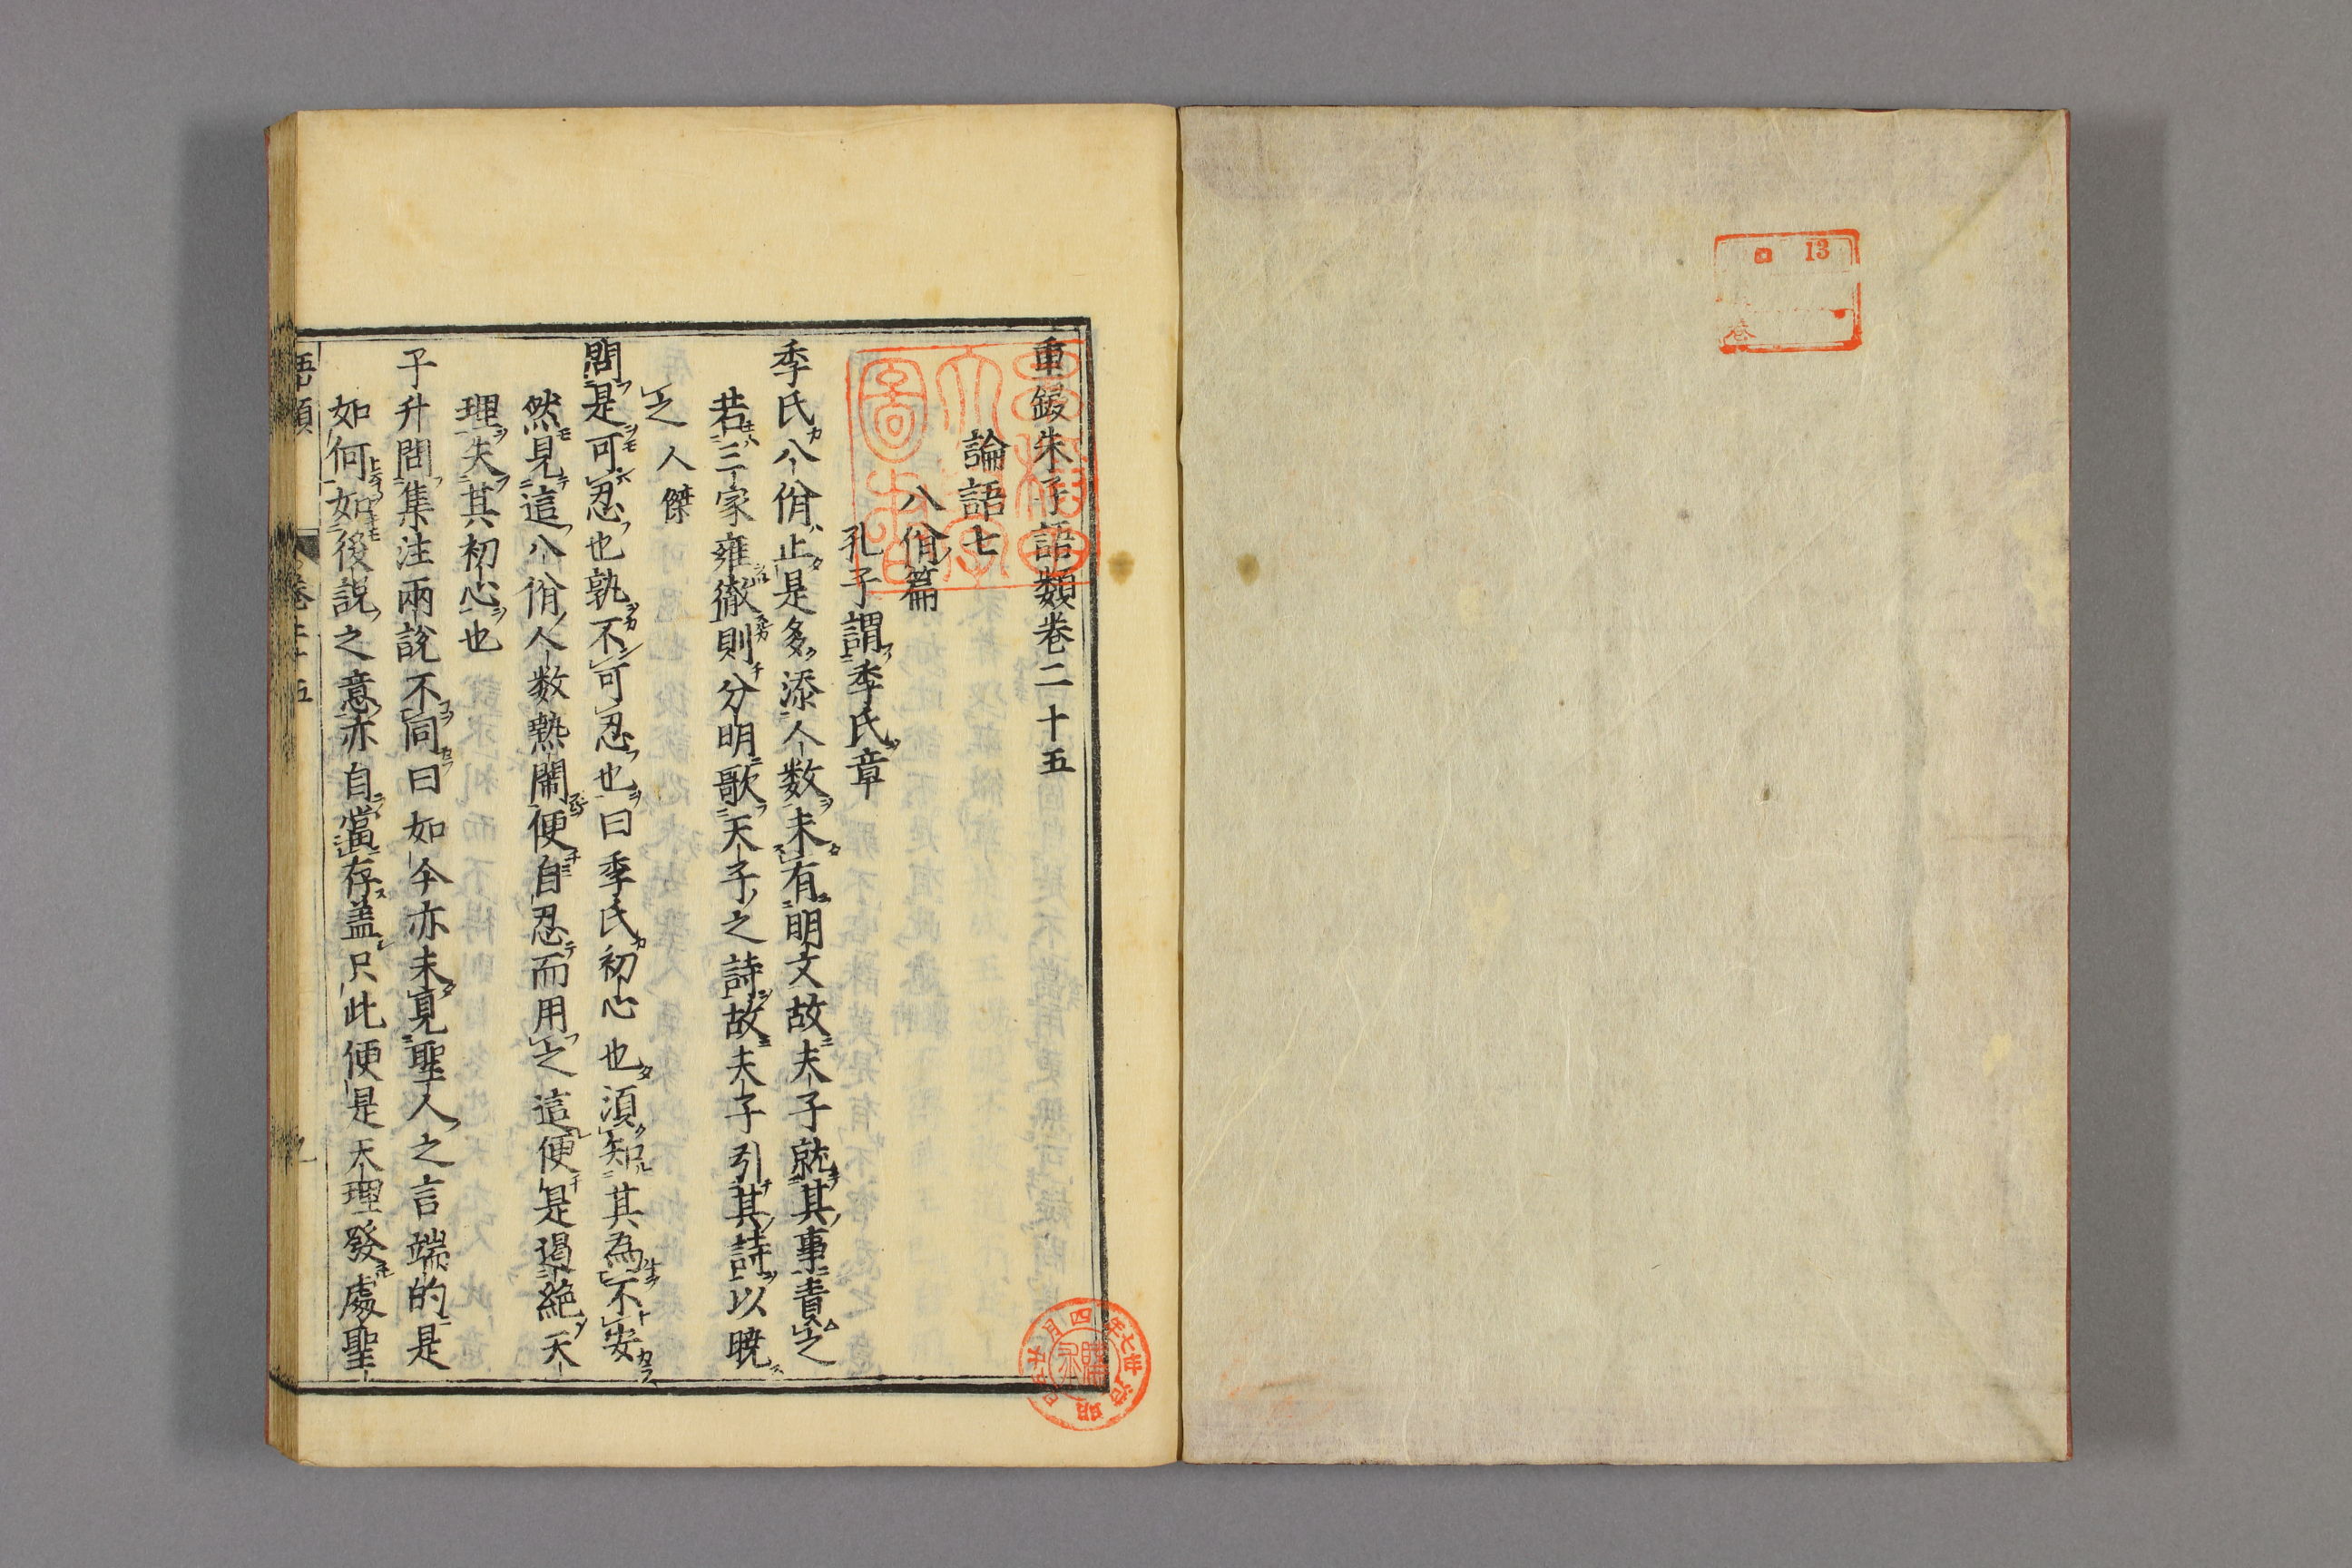 13
卷
重鋟朱子語類卷二十五
論語七
八佾篇
孔子謂季氏章
季氏八佾止是多添人数未有明文故夫子就其事責之
若三家雍徹則分明歌天子之詩故夫子引其詩以暁
之人傑
問是可忍也孰不可忍也曰季氏初心也湏知其為不安
然見這八佾人数熱閙便自忍而用之這便是遏絶天
理失其初心也
子升問集注兩說不同曰如今亦未見聖人之言端的是
如何如後説之意亦自當存盖只此便是天理發處聖
語類 卷二十五
圖書
明治卅七年四月